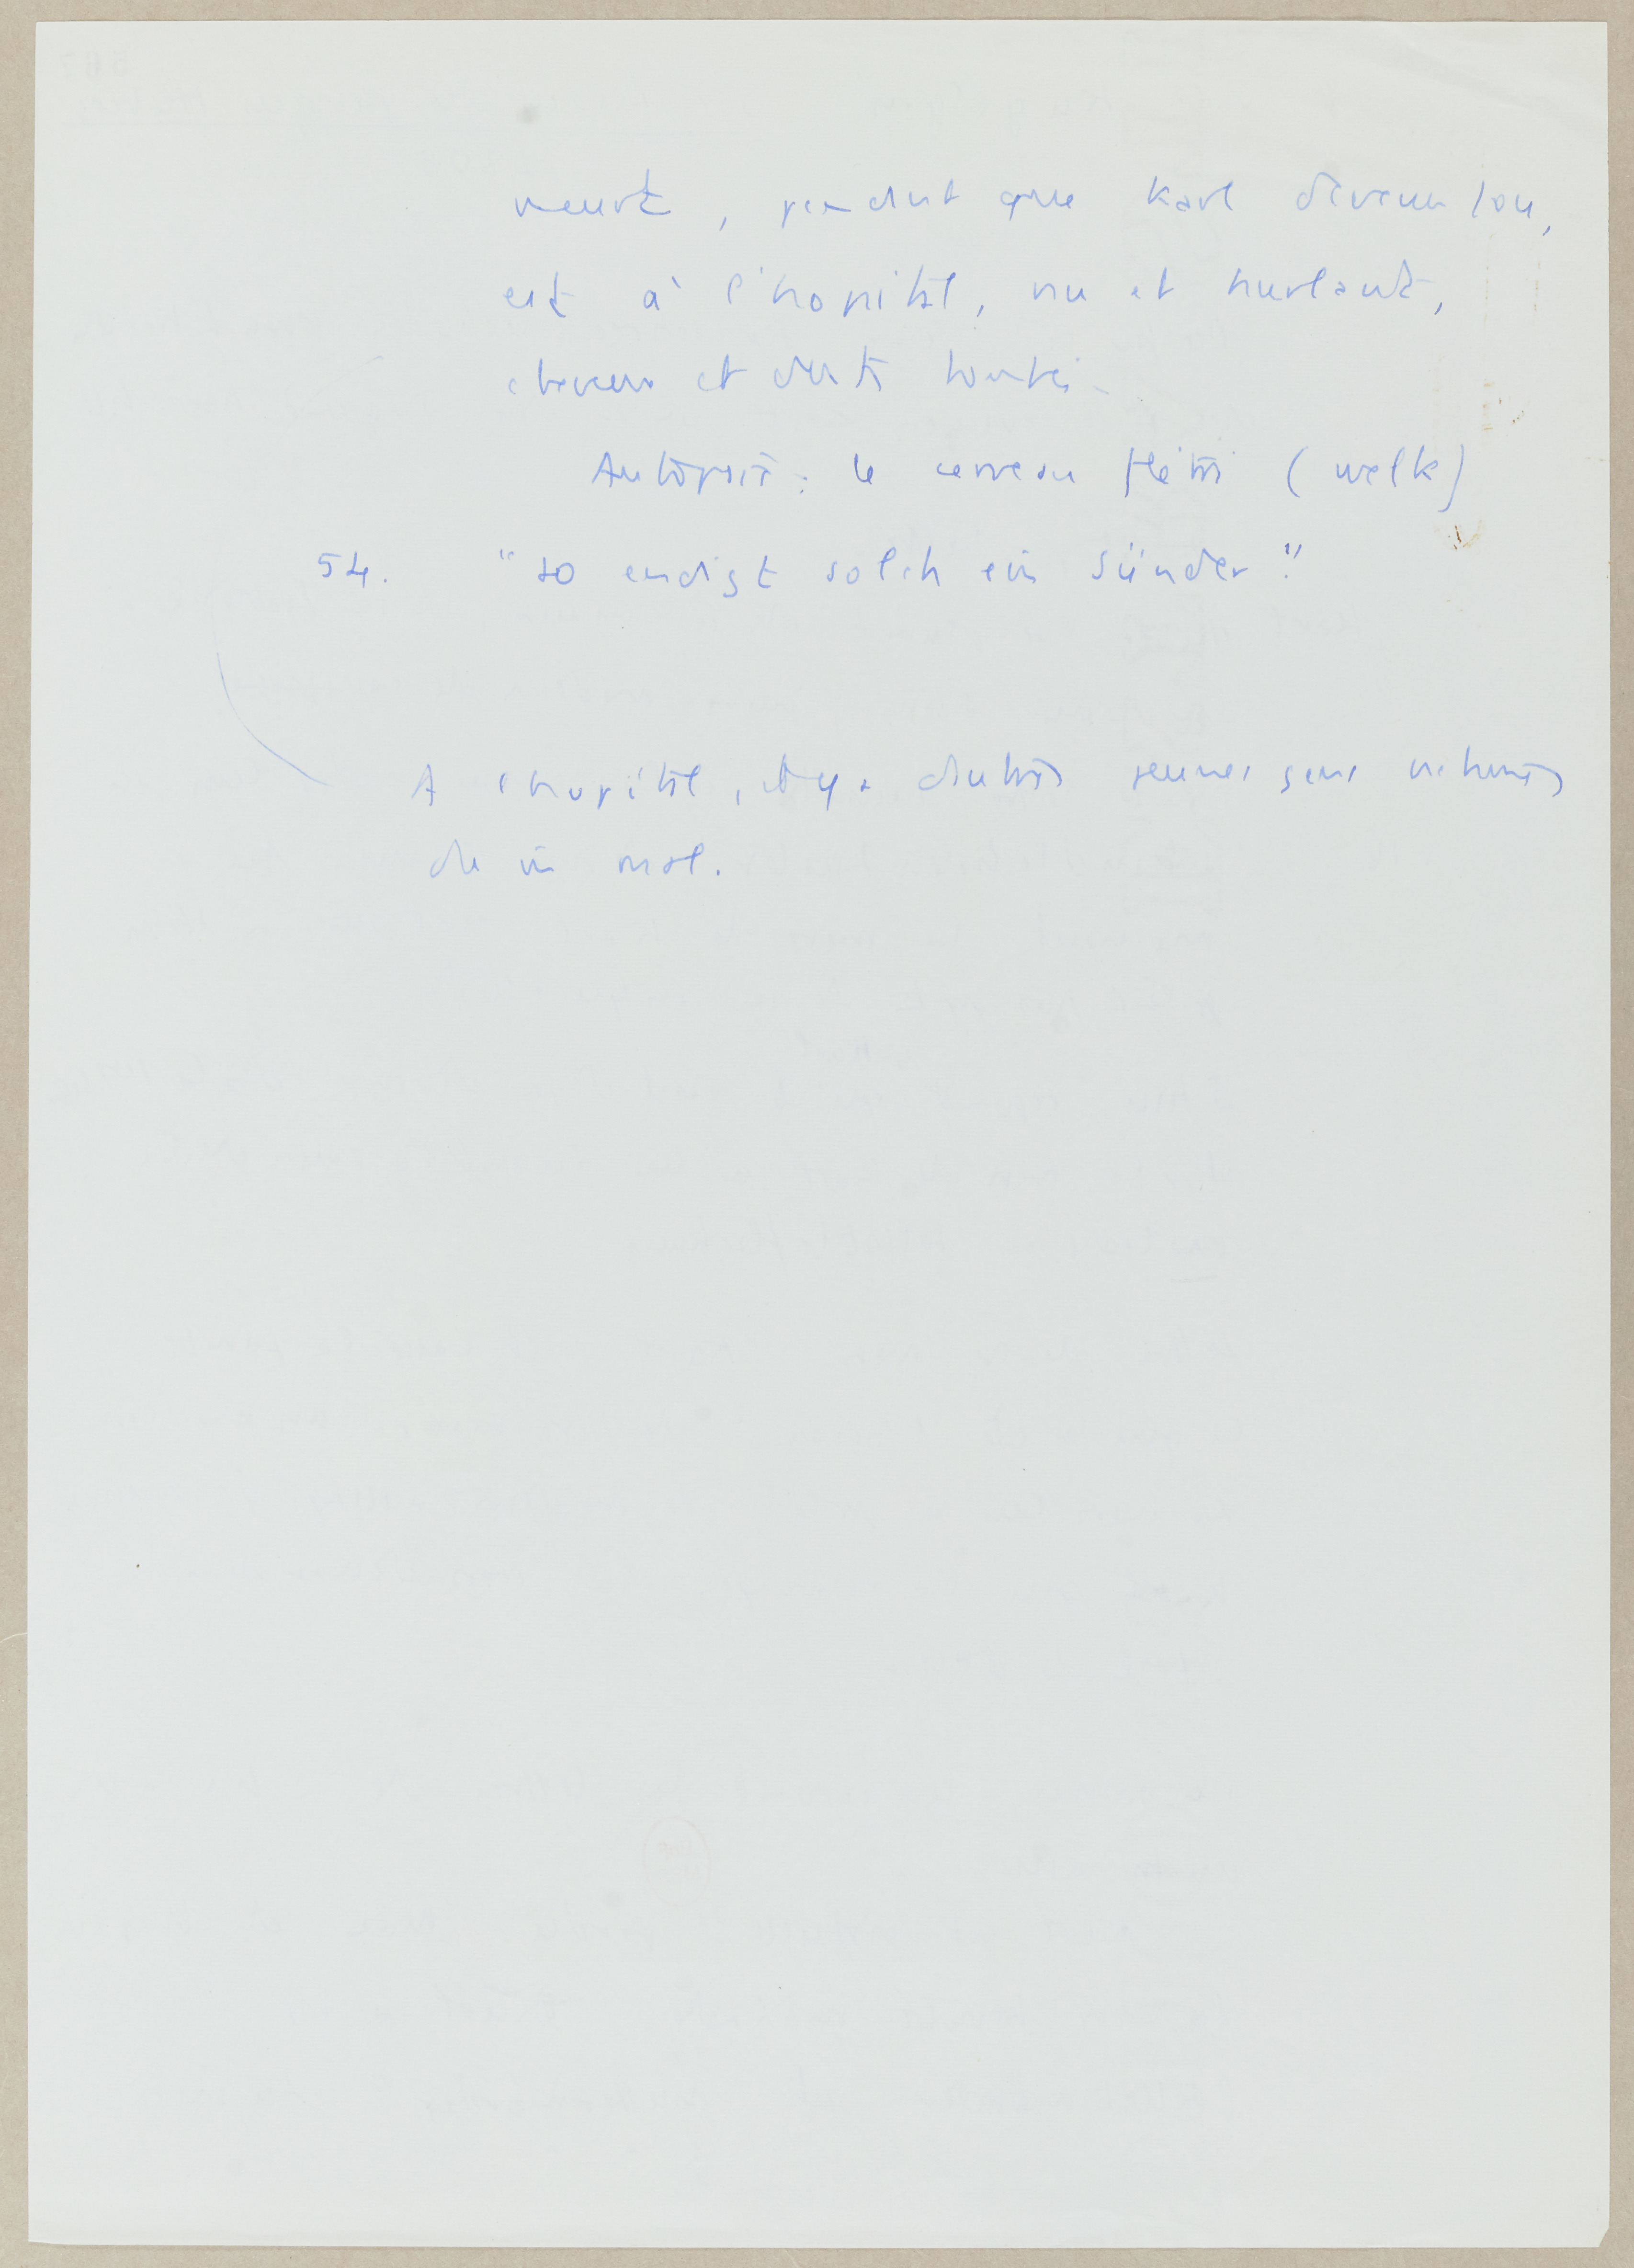 meurt, pendant que Karl devenu fou,
est à l'hopital, nu et hurlant,
cheveux et dents tombés.
Autopsie : le cerveau flétri (welk)
54. "so endigt solch ein Sünder".
A l'hopital, il y a d'autres jeunes gens victimes
de ce mal.